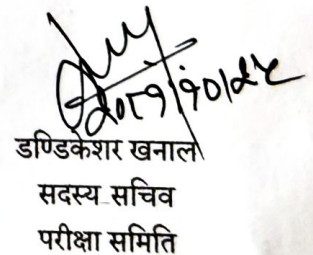 २०८१।१०।२५
डण्डिकेशर खनाल
सदस्य सचिव
परीक्षा समिति